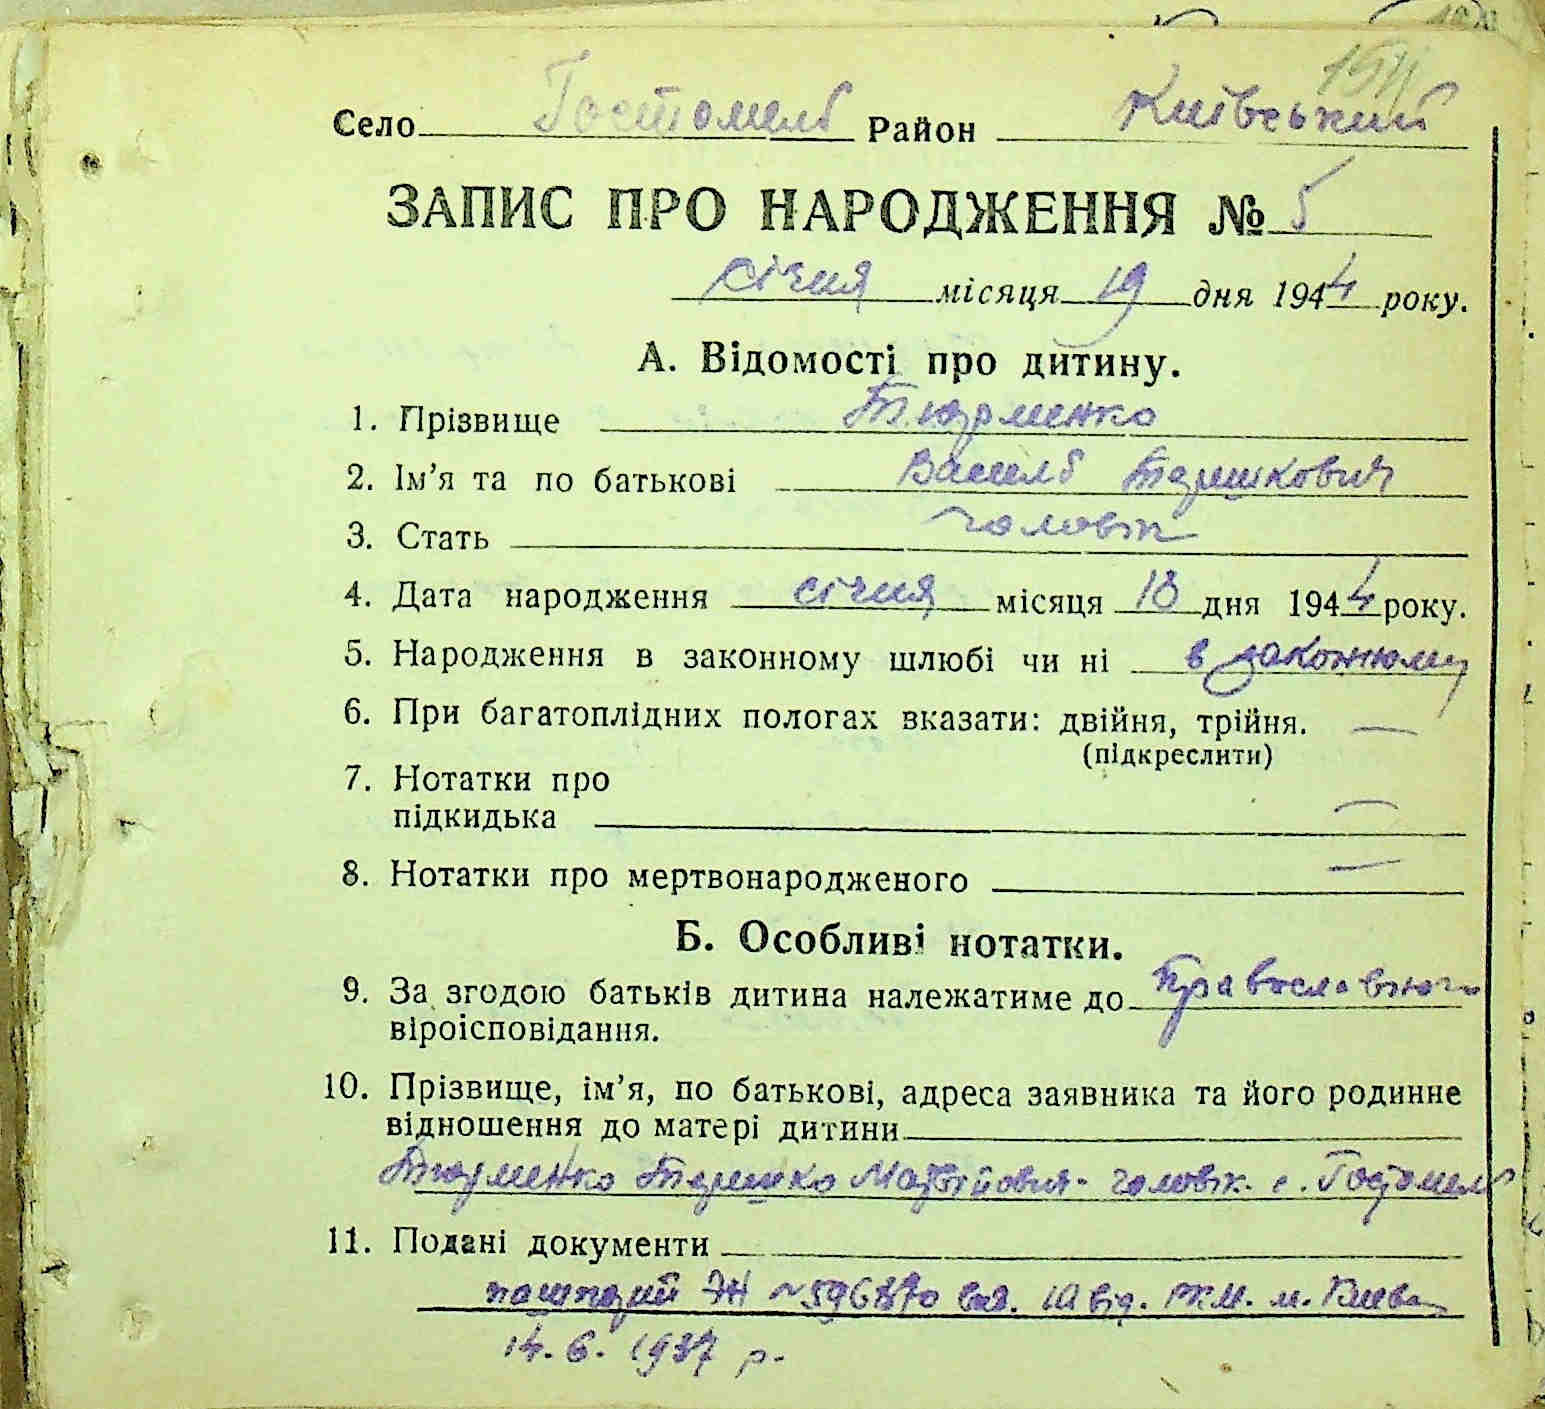 154
Село Гостомель Район Київський
ЗАПИС ПРО НАРОДЖЕННЯ № 5
січня місяця 19 дня 1944 року.
А. Відомості про дитину.
1. Прізвище Тюрменко
2. Ім'я та по батькові Василь Терешкович
3. Стать чоловік
4. Дата народження січня місяця 18 дня 1944 року.
5. Народження в законному шлюбі чи ні в законному
6. При багатоплідних пологах вказати: двійня, трійня. —
(підкреслити)
7. Нотатки про
підкидька —
8. Нотатки про мертвонародженого —
Б. Особливі нотатки.
9. За згодою батьків дитина належатиме до православного
віроісповідання.
10. Прізвище, ім'я, по батькові, адреса заявника та його родинне
відношення до матері дитини
Тюрменко Терешко Матвійович - чоловік. с. Гостомель
11. Подані документи
пашпорт № 596870 вид. 10 від. РКМ. м. Києва
14. 6. 1937 р.